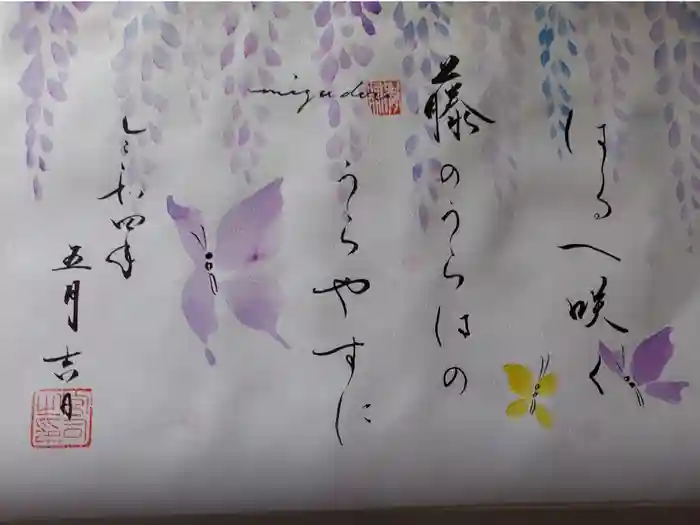 はるへ咲く
藤のうらはの
うらやすに
令和四年
五月吉日